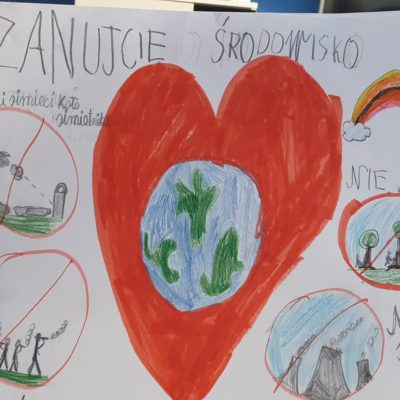 ZANUJCIE O ŚRODOWMSKO
i śimieci koło
śimietnika
NIE